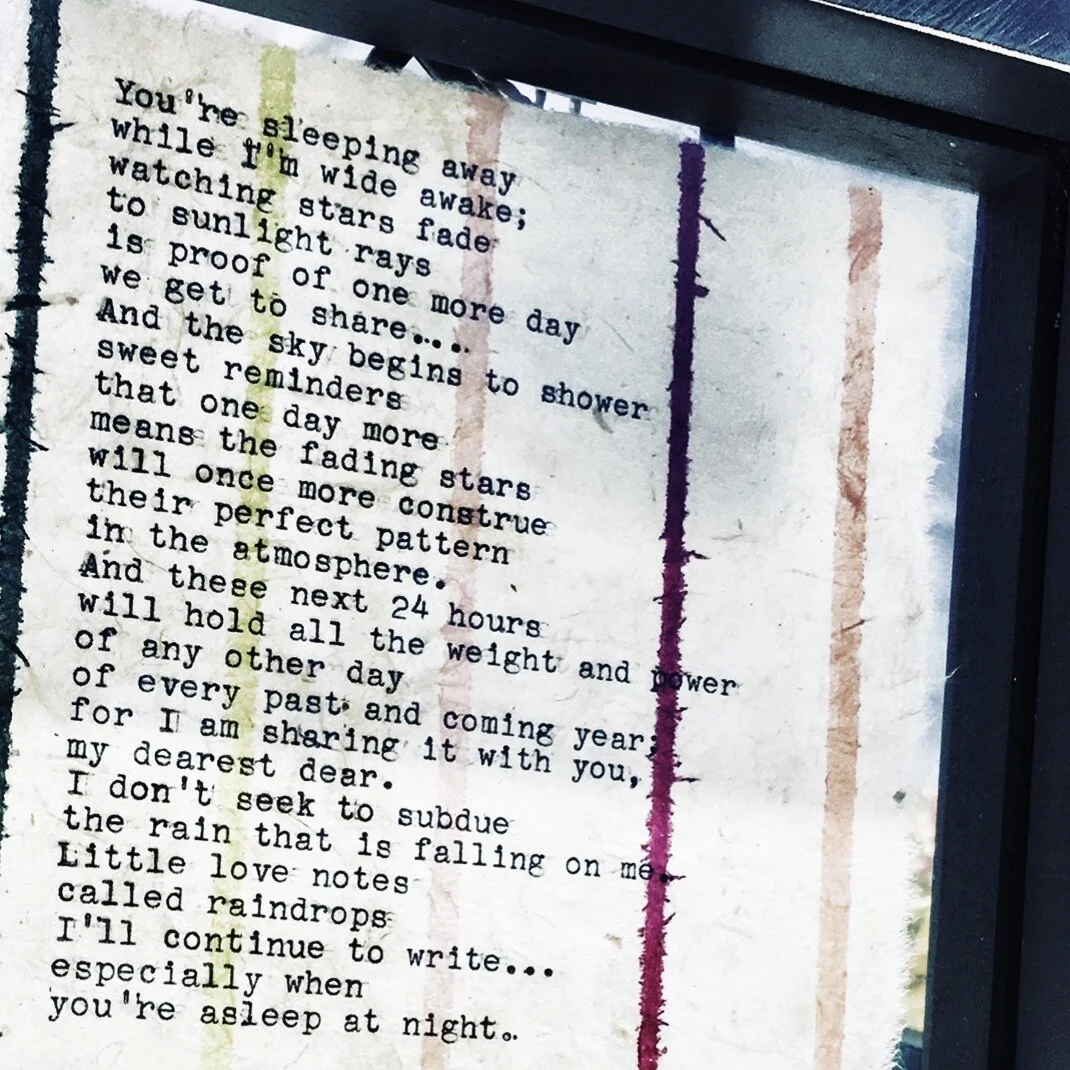 You're sleeping away
while I'm wide awake;
watching stars fade
to sunlight rays
is proof of one more day
we get to share....
And the sky begins to shower
sweet reminders
that one day more
means the fading stars
will once more construe
their perfect pattern
in the atmosphere.
And these next 24 hours
will hold all the weight and power
of any other day
of every past and coming year;
for I am sharing it with you,
my dearest dear.
I don't seek to subdue
the rain that is falling on me.
Little love notes
called raindrops
I'll continue to write...
especially when
you're asleep at night.